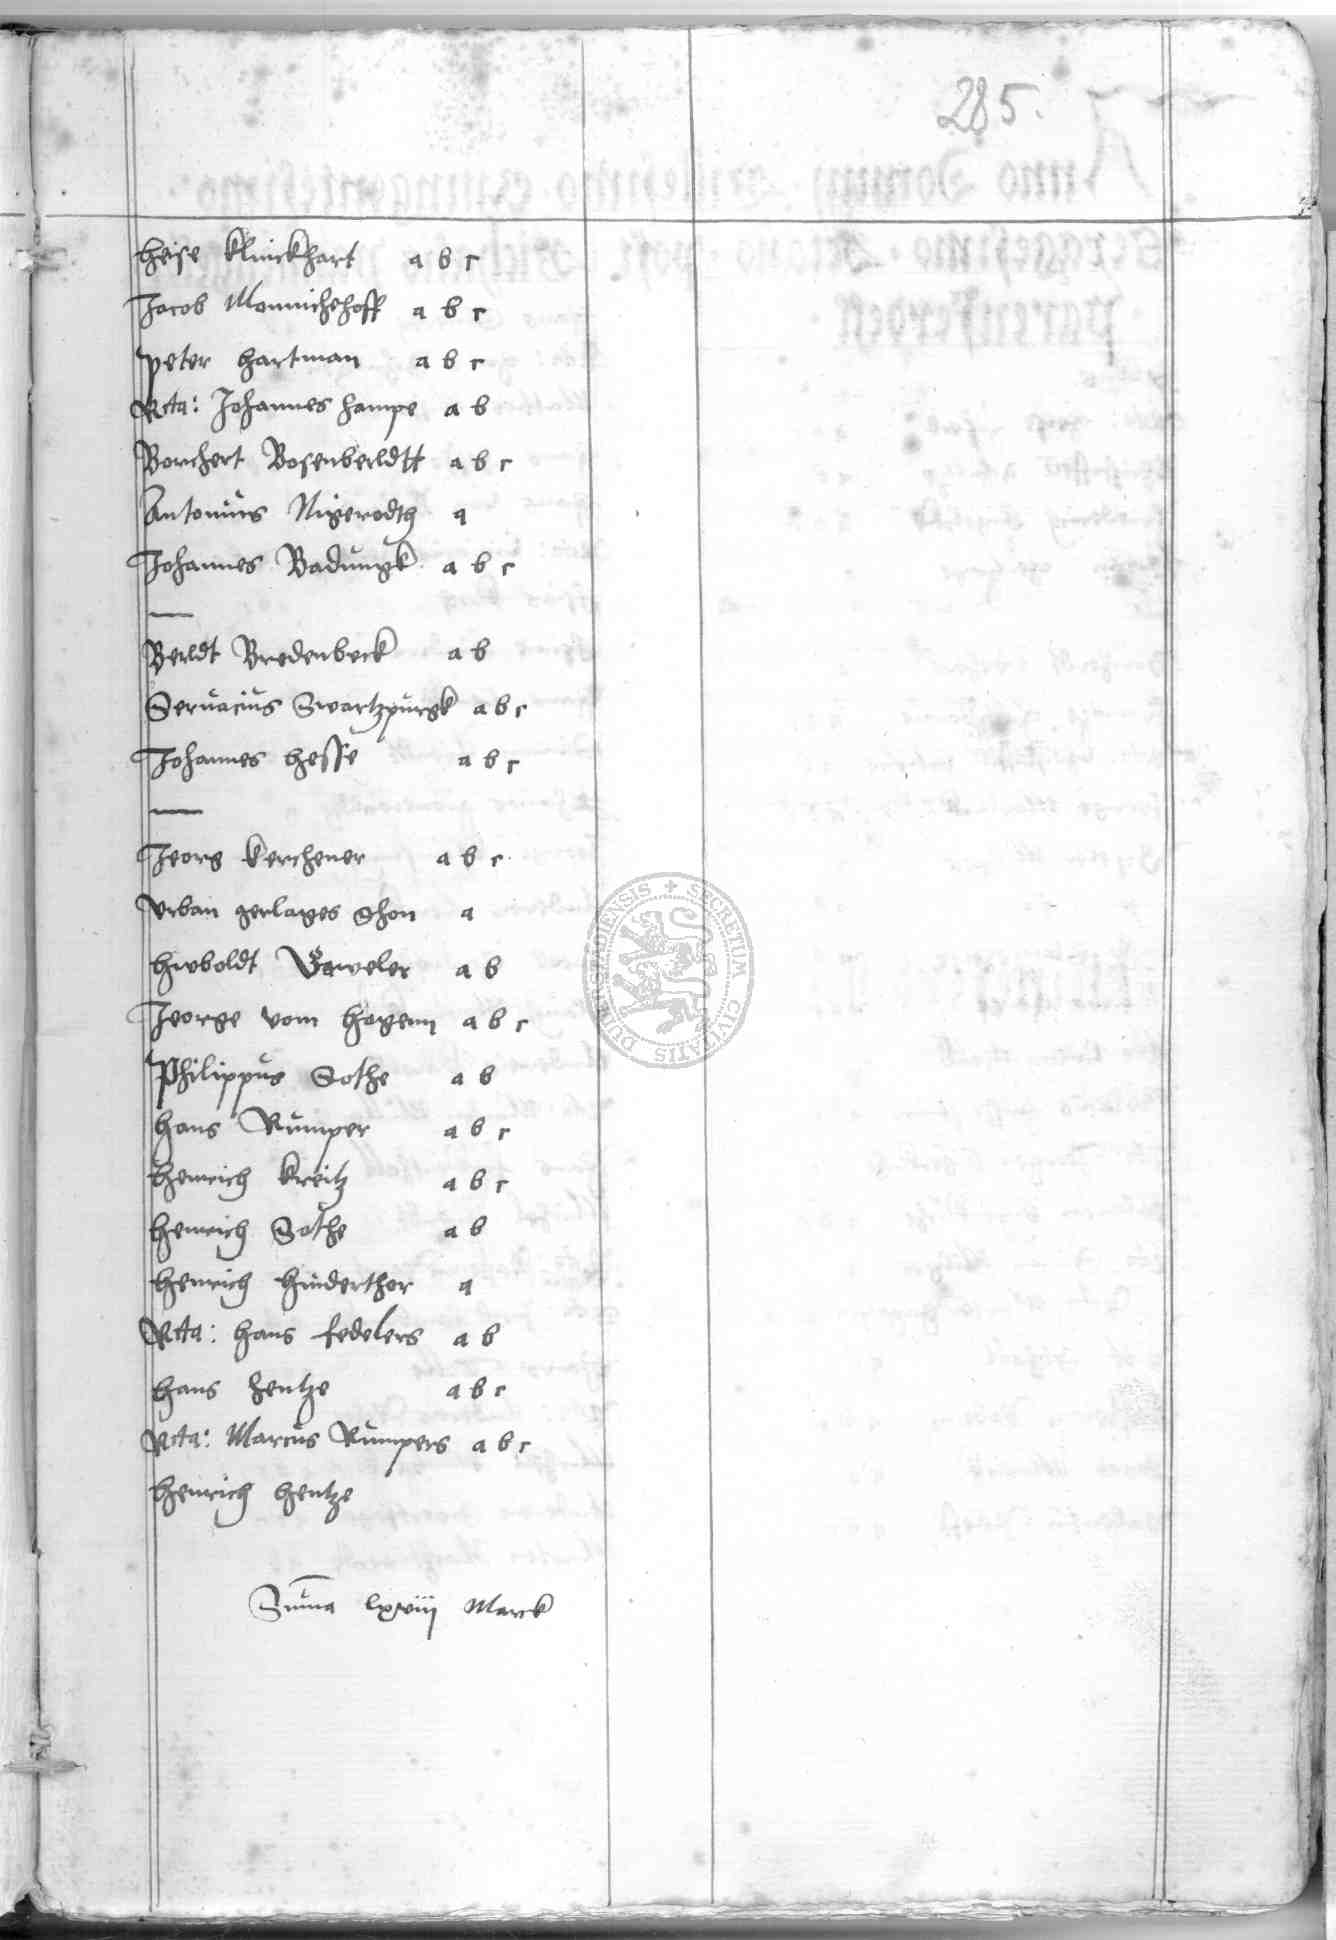 285.
Heise Klinckhart a b c
Jacob Monnichehoff a b c
Peter Hartman a b c
Rcta: Johannes Hampe a b
Borchert Bosenberldtt a b c
Antonius Nigerodth a
Johannes Badungk a b c
Berldt Bredenbeck a b
Seruacius Swartzpurgk a b c
Johannes Hesse a b c
Jeorg Kerchener a b c
Vrban gerlages Shon a
Hwboldt a b
Jeorge vom Hagenn a b c
Philippus Sothe a b
Hans Rumper a b c
Henrich Kreitz a b c
Henrich Sothe a b
Henrich Hinderthor a
Rcta: Hans fedelers a b
Hans Hentze a b c
Rcta: Marcus Rumpers a b c
Henrich Hentze
Suma lxviij Marck
SECRETUM CIVITATIS DUDERSTADIENSIS